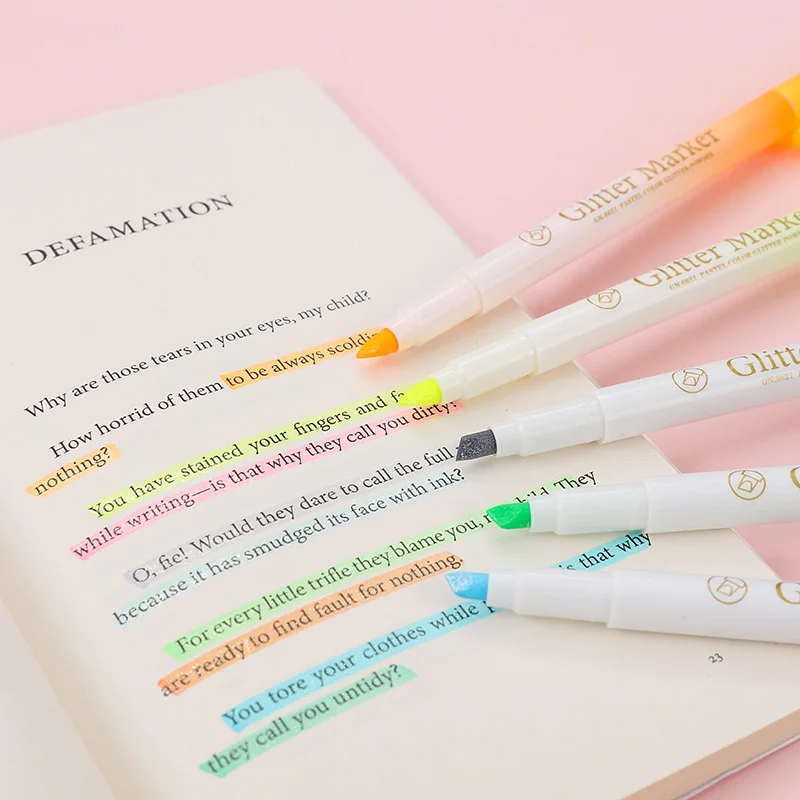 DEFAMATION
Why are those tears in your eyes, my child?
How horrid of them to be always scoldi
nothing?
You have stained your fingers and f
while writing—is that why they call you dirty?
O, fie! Would they dare to call the full
because it has smudged its face with ink?
For every little trifle they blame you, my child. They
are ready to find fault for nothing.
You tore your clothes while is that why
they call you untidy?
23
Glitter Marker
GN.0821 PASTEL COLOR GLITTER POWDER
Glitter Marker
GN.0821 PASTEL COLOR GLITTER POW
Glitt
GN.0821
G
G